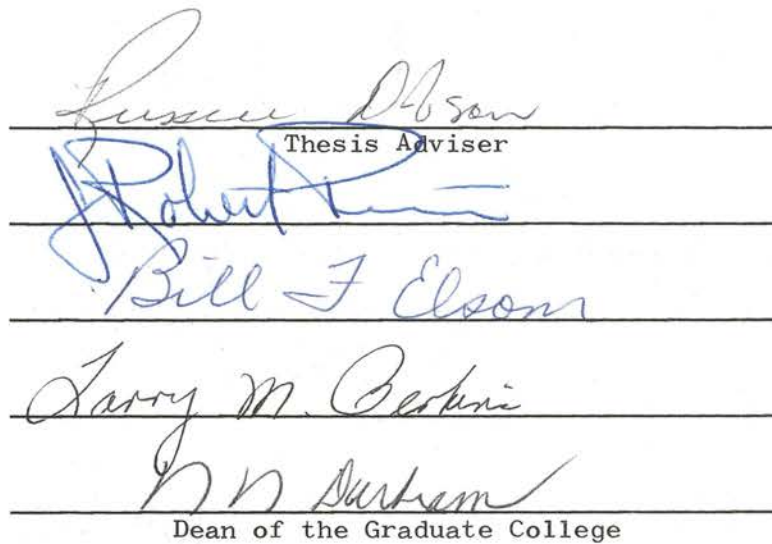 Russell Dobson
Thesis Adviser
J Robert
Bill F Elsom
Larry M. Perkins
N N Durham
Dean of the Graduate College